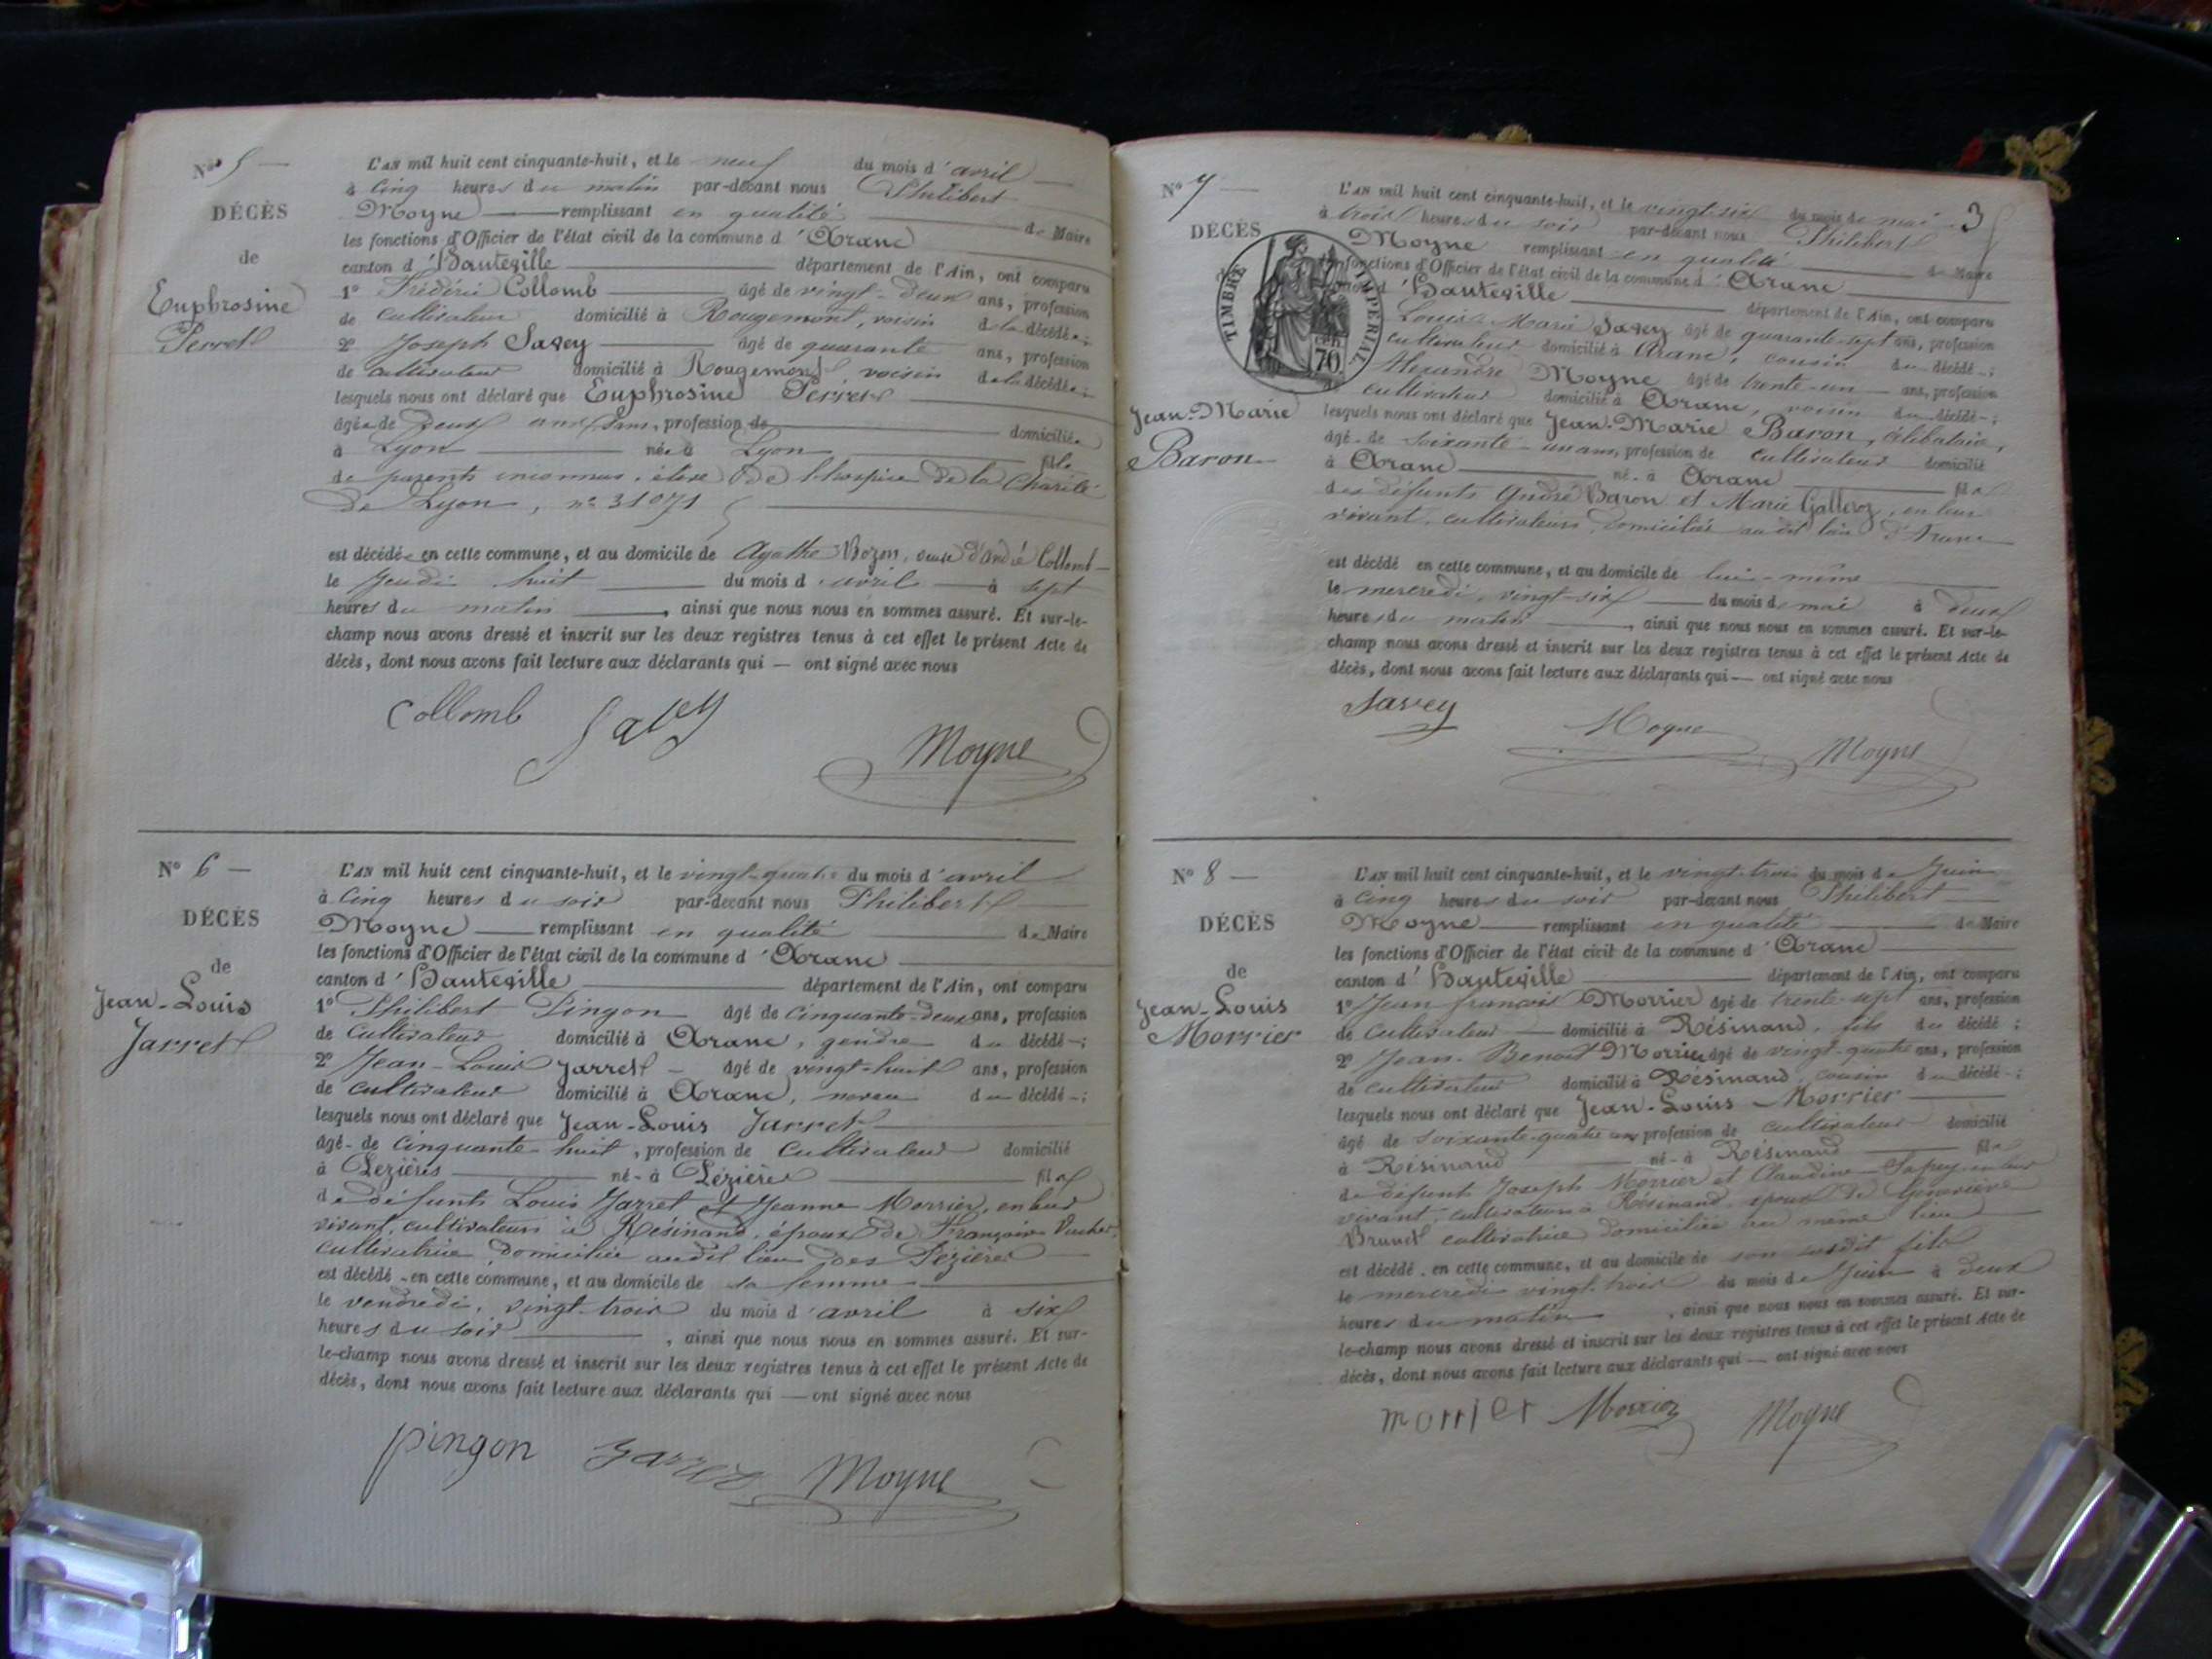 N° 5
DÉCÈS
de
Euphrosine
Perret
L'AN mil huit cent cinquante-huit, et le neuf du mois d'avril
à cinq heures du matin par-devant nous Philibert
Moyne remplissant en qualité de Maire
les fonctions d'Officier de l'état civil de la commune d'Aranc
canton d'Hauteville département de l'Ain, ont comparu
1° Frédéric Collomb âgé de vingt-deux ans, profession
de cultivateur domicilié à Rougemont, voisin de la décédée;
2° Joseph Savey âgé de quarante ans, profession
de cultivateur domicilié à Rougemont, voisin de la décédée;
lesquels nous ont déclaré que Euphrosine Perret
âgée de deux ans, profession de domiciliée
à Lyon née à Lyon fille
de parents inconnus, élève de l'hospice de la Charité
de Lyon, n° 31071
est décédée en cette commune, et au domicile de Agathe Bozon, veuve d'André Collomb
le jeudi huit du mois d'avril à sept
heures du matin, ainsi que nous nous en sommes assuré. Et sur-le-
champ nous avons dressé et inscrit sur les deux registres tenus à cet effet le présent Acte de
décès, dont nous avons fait lecture aux déclarants qui — ont signé avec nous
Collomb Savey Moyne
N° 6
DÉCÈS
de
Jean-Louis
Jarret
L'AN mil huit cent cinquante-huit, et le vingt-quatre du mois d'avril
à cinq heures du soir par-devant nous Philibert
Moyne remplissant en qualité de Maire
les fonctions d'Officier de l'état civil de la commune d'Aranc
canton d'Hauteville département de l'Ain, ont comparu
1° Philibert Pingon âgé de cinquante-deux ans, profession
de cultivateur domicilié à Aranc, gendre du décédé;
2° Jean-Louis Jarret âgé de vingt-huit ans, profession
de cultivateur domicilié à Aranc, neveu du décédé;
lesquels nous ont déclaré que Jean-Louis Jarret
âgé de cinquante huit, profession de cultivateur domicilié
à Lezières né à Lézières fils
de défunts Louis Jarret et Jeanne Morrier, en leur
vivant, cultivateurs à Résinand, époux de Françoise
cultivatrice domiciliée audit lieu des Lézières
est décédé en cette commune, et au domicile de sa femme
le vendredi, vingt-trois du mois d'avril à six
heures du soir, ainsi que nous nous en sommes assuré. Et sur-
le-champ nous avons dressé et inscrit sur les deux registres tenus à cet effet le présent Acte de
décès, dont nous avons fait lecture aux déclarants qui — ont signé avec nous
pingon Jarret Moyne
3
N° 7
DÉCÈS
TIMBRE IMPÉRIAL
70
Jean-Marie
Baron
L'AN mil huit cent cinquante-huit, et le vingt-six du mois de mai
à trois heures du soir par-devant nous Philibert
Moyne remplissant en qualité de Maire
fonctions d'Officier de l'état civil de la commune d'Aranc
d'Hauteville département de l'Ain, ont comparu
Louis-Marie Savey âgé de quarante-sept ans, profession
cultivateur domicilié à Aranc, cousin du décédé;
Alexandre Moyne âgé de trente-un ans, profession
cultivateur domicilié à Aranc, voisin du décédé;
lesquels nous ont déclaré que Jean-Marie Baron, célibataire,
âgé de soixante-un ans, profession de cultivateur domicilié
à Aranc né à Aranc fils
des défunts André Baron et Marie Galleroz, en leur
vivant, cultivateurs, domiciliés au dit lieu d'Aranc
est décédé en cette commune, et au domicile de lui-même
le mercredi, vingt-six du mois de mai à deux
heures du matin, ainsi que nous nous en sommes assuré. Et sur-le-
champ nous avons dressé et inscrit sur les deux registres tenus à cet effet le présent Acte de
décès, dont nous avons fait lecture aux déclarants qui — ont signé avec nous
Savey Moyne Moyne
N° 8
DÉCÈS
de
Jean-Louis
Morrier
L'AN mil huit cent cinquante-huit, et le vingt-trois du mois de Juin
à cinq heures du soir par-devant nous Philibert
Moyne remplissant en qualité de Maire
les fonctions d'Officier de l'état civil de la commune d'Aranc
canton d'Hauteville département de l'Ain, ont comparu
1° Jean François Morrier âgé de trente-sept ans, profession
de cultivateur domicilié à Résinand, fils du décédé;
2° Jean-Benoit Morrier âgé de vingt-quatre ans, profession
de cultivateur domicilié à Résinand, cousin du décédé;
lesquels nous ont déclaré que Jean-Louis Morrier
âgé de soixante-quatre ans profession de cultivateur domicilié
à Résinand né à Résinand fils
de défunts Joseph Morrier et Claudine en leur
vivant, cultivateurs à Résinand, époux de Geneviève
Brunet cultivatrice domiciliée au même lieu
est décédé en cette commune, et au domicile de son susdit fils
le mercredi vingt-trois du mois de Juin à deux
heures du matin, ainsi que nous nous en sommes assuré. Et sur-
le-champ nous avons dressé et inscrit sur les deux registres tenus à cet effet le présent Acte de
décès, dont nous avons fait lecture aux déclarants qui — ont signé avec nous
morrier Morrier Moyne